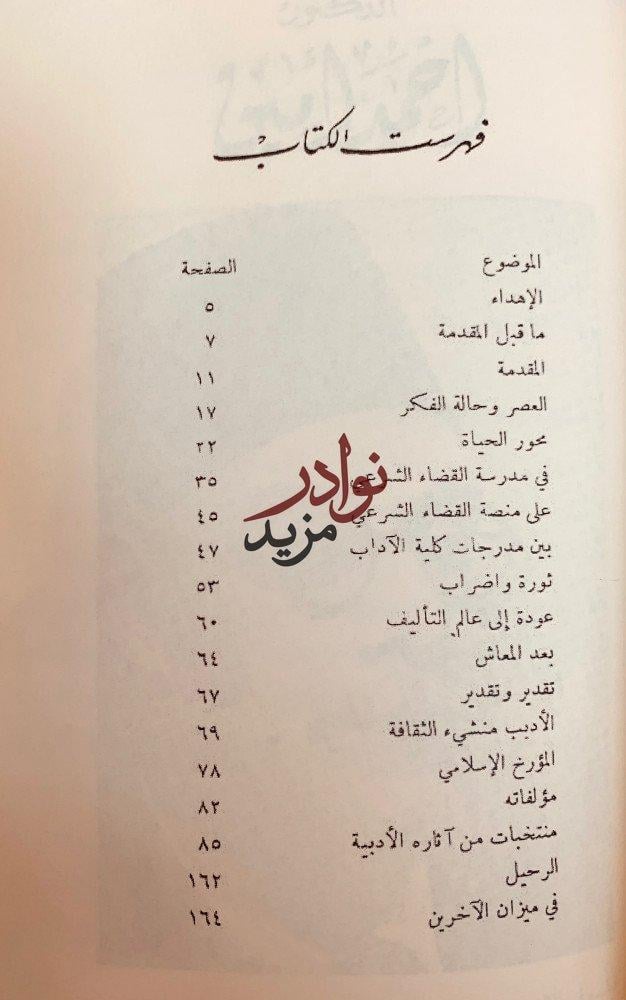 الدكتور
احمد امين
فهرست الكتاب
الموضوع الصفحة
الإهداء ٥
ما قبل المقدمة ٧
المقدمة ١١
العصر وحالة الفكر ١٧
محور الحياة ٢٢
في مدرسة القضاء الشرعي ٣٥
على منصة القضاء الشرعي ٤٥
بين مدرجات كلية الآداب ٤٧
ثورة واضراب ٥٣
عودة إلى عالم التأليف ٦٠
بعد المعاش ٦٤
تقدير وتقدير ٦٧
الأديب منشيء الثقافة ٦٩
المؤرخ الإسلامي ٧٨
مؤلفاته ٨٢
منتخبات من آثاره الأدبية ٨٥
الرحيل ١٦٢
في ميزان الآخرين ١٦٤
نوادر
مزيد